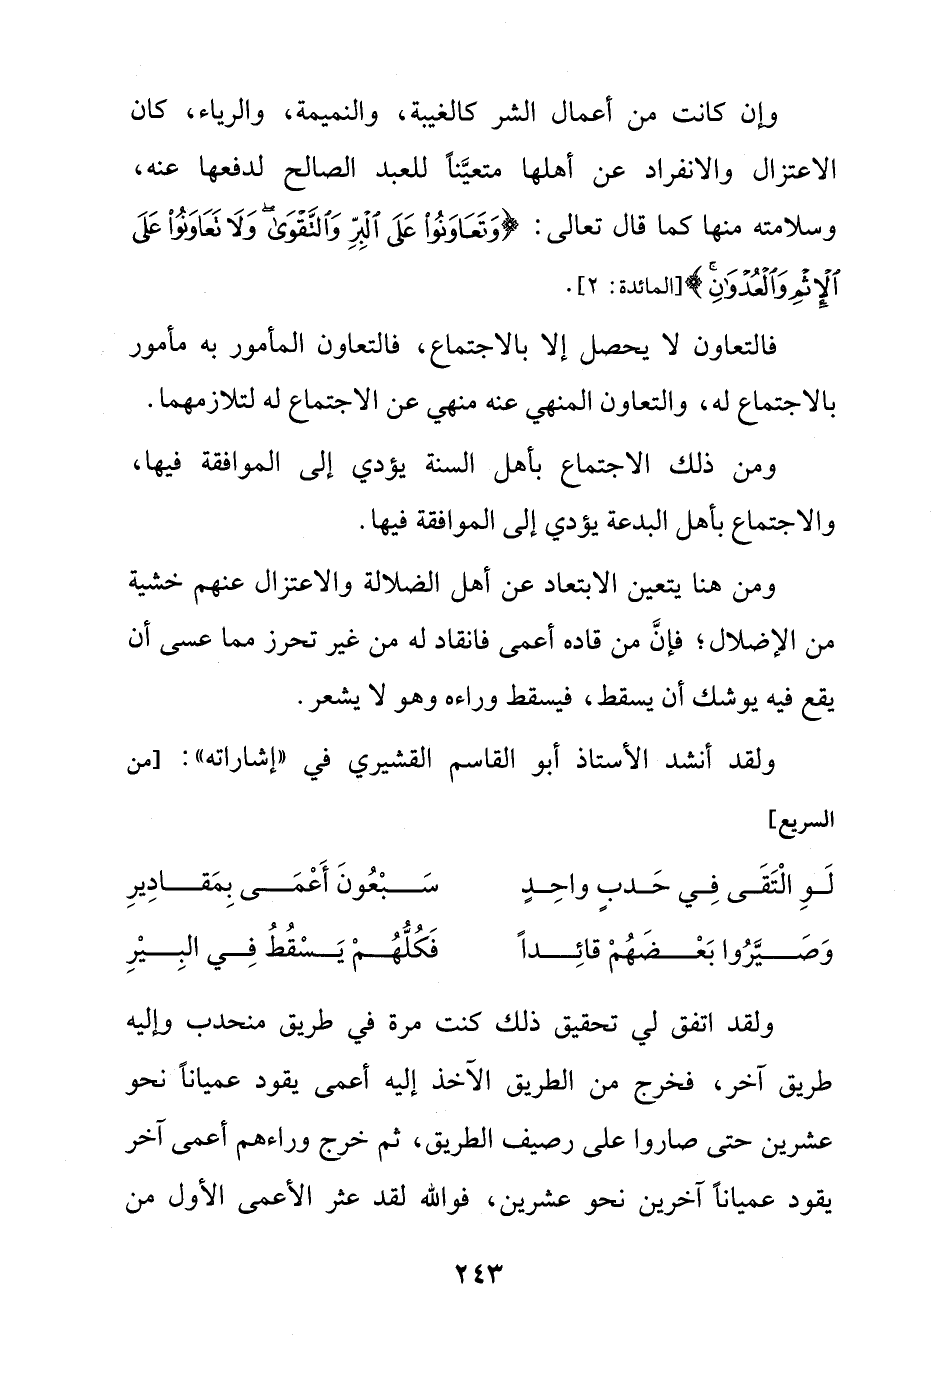 وإن كانت من أعمال الشر كالغيبة، والنميمة، والرياء، كان
الاعتزال والانفراد عن أهلها متعيَّناً للعبد الصالح لدفعها عنه،
وسلامته منها كما قال تعالى: ﴿وَتَعَاوَنُوا۟ عَلَى ٱلۡبِرِّ وَٱلتَّقۡوَىٰۖ وَلَا تَعَاوَنُوا۟ عَلَى
ٱلۡإِثۡمِ وَٱلۡعُدۡوَٰنِۚ﴾ [المائدة: ٢].
فالتعاون لا يحصل إلا بالاجتماع، فالتعاون المأمور به مأمور
بالاجتماع له، والتعاون المنهي عنه منهي عن الاجتماع له لتلازمهما.
ومن ذلك الاجتماع بأهل السنة يؤدي إلى الموافقة فيها،
والاجتماع بأهل البدعة يؤدي إلى الموافقة فيها.
ومن هنا يتعين الابتعاد عن أهل الضلالة والاعتزال عنهم خشية
من الإضلال؛ فإنَّ من قاده أعمى فانقاد له من غير تحرز مما عسى أن
يقع فيه يوشك أن يسقط، فيسقط وراءه وهو لا يشعر.
ولقد أنشد الأستاذ أبو القاسم القشيري في «إشاراته»: [من
السريع]
لَوِ الْتَقَى فِي حَدبٍ واحِدٍ سَبْعُونَ أَعْمَى بِمَقادِيرِ
وَصَيَّرُوا بَعْضَهُمْ قائِداً فَكُلُّهُمْ يَسْقُطُ فِي البِيْرِ
ولقد اتفق لي تحقيق ذلك كنت مرة في طريق منحدب وإليه
طريق آخر، فخرج من الطريق الآخذ إليه أعمى يقود عمياناً نحو
عشرين حتى صاروا على رصيف الطريق، ثم خرج وراءهم أعمى آخر
يقود عمياناً آخرين نحو عشرين، فوالله لقد عثر الأعمى الأول من
٢٤٣